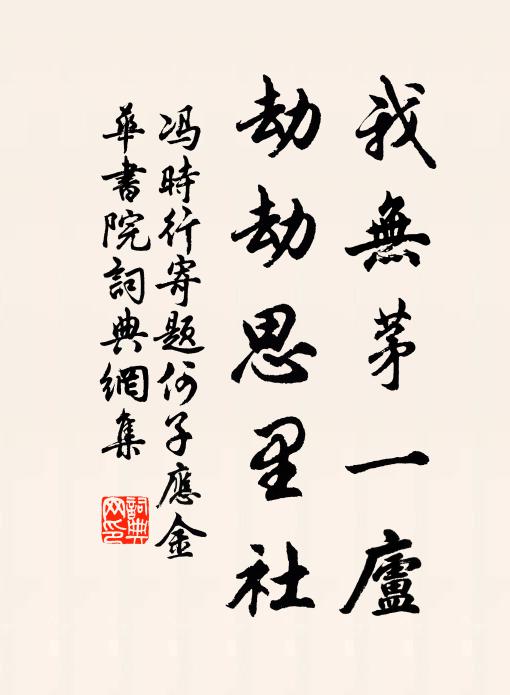 我無茅一廬
劫劫思里社
冯時行寄題何子應金
華書院詞典網集
詞典網印